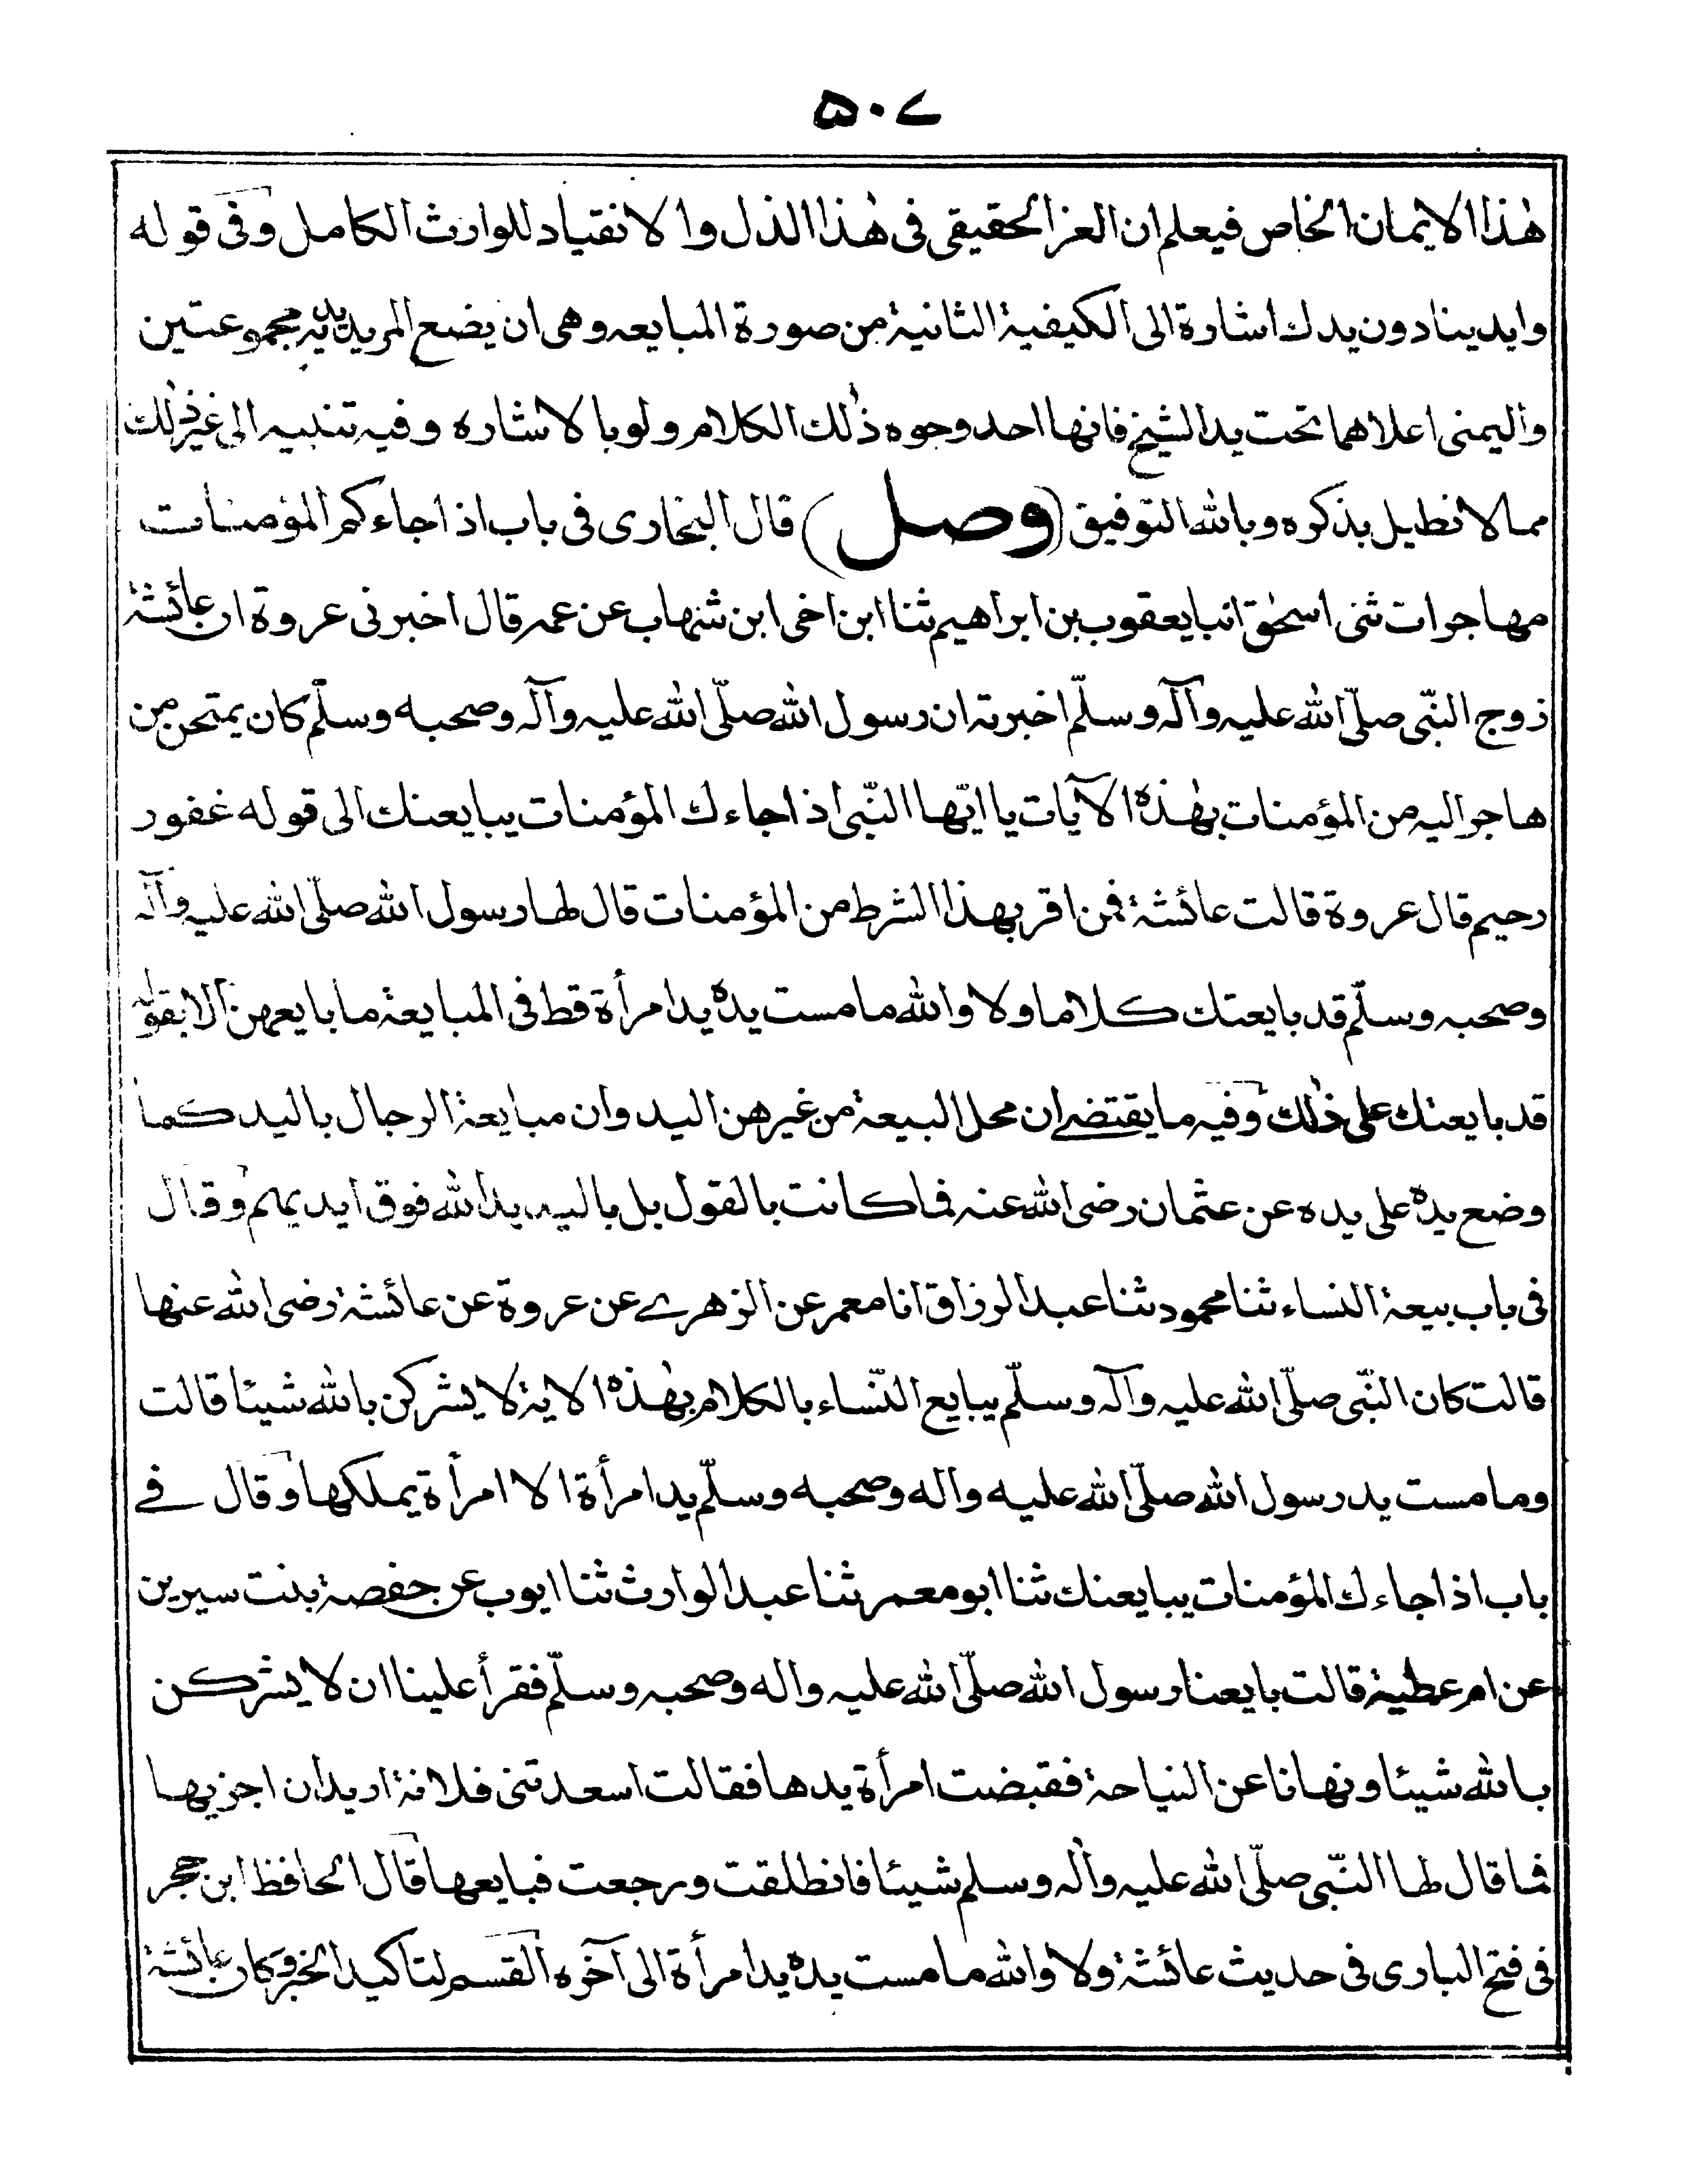 ۵۰۷
هٰذا الایمان الخاص فیعلم ان العز الحقیقی فی هٰذا الذل والانقیاد للوارث الکامل وفی قوله
وایدینا دون یدك اشارة الی الکیفیة الثانیة من صورة المبایعه وهی ان یضع المرید یدیه مجموعتین
والیمنی اعلاهما تحت ید الشیخ فانها احد وجوه ذٰلك الکلام ولو بالاشاره وفیه تنبیه الی غیر ذٰلك
مما لا نطیل بذکره وبالله التوفیق (وصل) قال البخاری فی باب اذا جاءکم المؤمنات
مهاجرات ثنی اسحٰق انبا یعقوب بن ابراهیم ثنا ابن اخی ابن شهاب عن عمه قال اخبرنی عروة ان عائشة
زوج النبّی صلّی الله علیه وآله وسلّم اخبرته ان رسول الله صلّی الله علیه وآله وصحبه وسلّم کان یمتحن من
هاجر الیه من المؤمنات بهٰذه الآیات یا ایّها النبّی اذا جاءك المؤمنات یبایعنك الی قوله غفور
رحیم قال عروة قالت عائشة فمن اقر بهذا الشرط من المؤمنات قال لها رسول الله صلّی الله علیه وآله
وصحبه وسلّم قد بایعتك کلاما ولا والله ما مست یده ید امرأة قط فی المبایعة ما بایعهن الا بقوله
قد بایعتك علی ذٰلك وفیه ما یقتضے ان محل البیعة من غیرهن الید وان مبایعة الرجال بالید کما
وضع یده علی یده عن عثمان رضی الله عنه فما کانت بالقول بل بالید ید الله فوق ایدیهم وقال
فی باب بیعة النساء ثنا محمود ثنا عبد الرزاق انا معمر عن الزهرے عن عروة عن عائشة رضی الله عنها
قالت کان النبّی صلّی الله علیه وآله وسلّم یبایع النّساء بالکلام بهٰذه الایة لا یشرکن بالله شیئا قالت
وما مست ید رسول الله صلّی الله علیه واله وصحبه وسلّم ید امرأة الا امرأة یملکها وقال فے
باب اذا جاءك المؤمنات یبایعنك ثنا ابو معمر ثنا عبد الوارث ثنا ایوب عن حفصة بنت سیرین
عن ام عطیة قالت بایعنا رسول الله صلّی الله علیه واله وصحبه وسلّم فقرأ علینا ان لا یشرکن
بالله شیئا ونهانا عن النیاحة فقبضت امرأة یدها فقالت اسعدتنی فلانة ارید ان اجزیها
فما قال لها النبّی صلّی الله علیه واله وسلم شیئا فانطلقت ورجعت فبایعها قال الحافظ ابن حجر
فی فتح الباری فی حدیث عائشة ولا والله ما مست یده ید امرأة الی آخره القسم لتاکید الخبر وکان عائشة